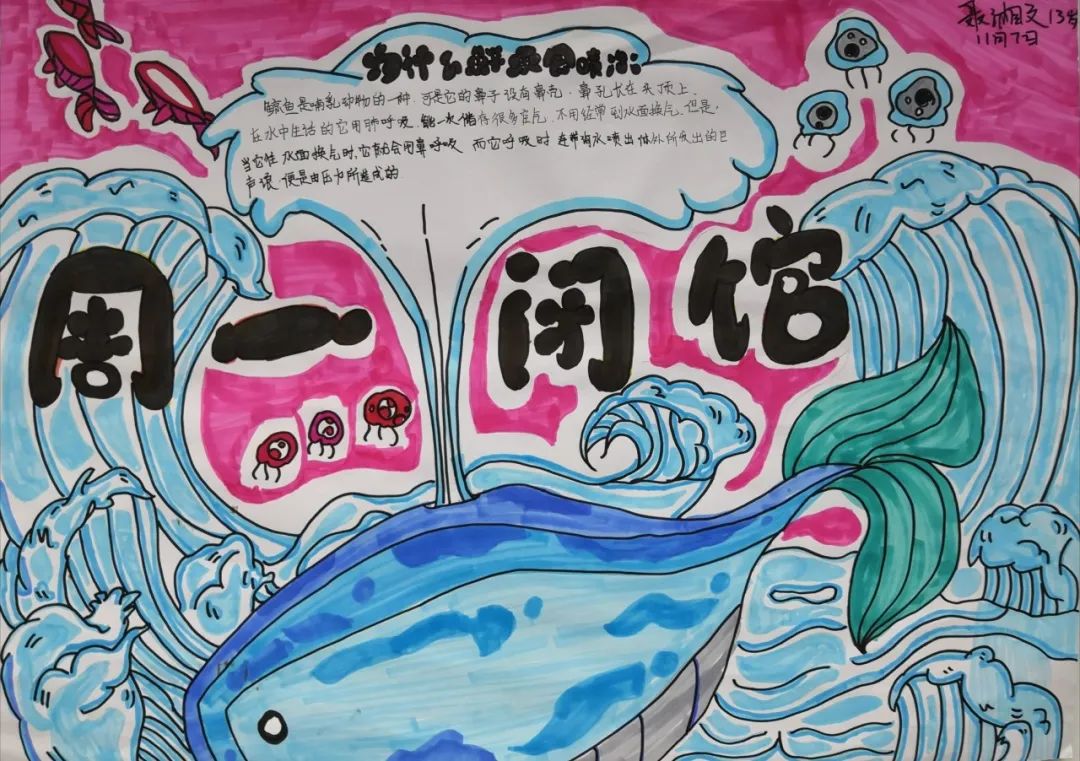 聂湘文 13岁
11月7日
为什么鲸鱼会喷水
鲸鱼是哺乳动物的一种,可是它的鼻子没有鼻壳,鼻孔长在头顶上.
在水中生活的它用肺呼吸,能一次储存很多空气,不用经常到水面换气.但是,
当它往水面换气时,它就会用鼻呼吸 而它呼吸时 连带有水喷出体外所发出的巨
声浪,便是由压力所造成的
周一闭馆